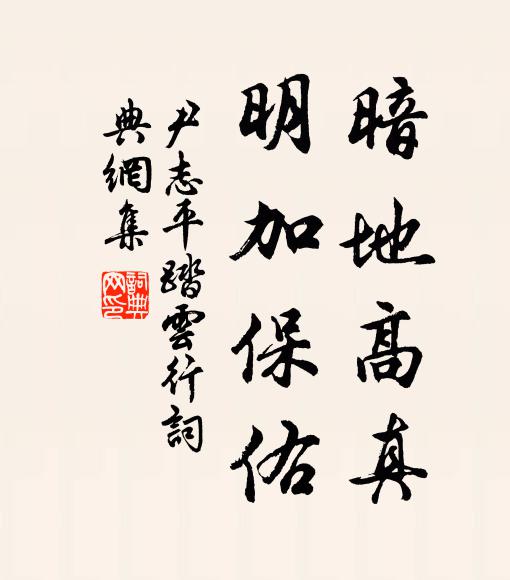 暗地高真
明加保佑
尹志平踏雲行詞
典網集
詞典
网印